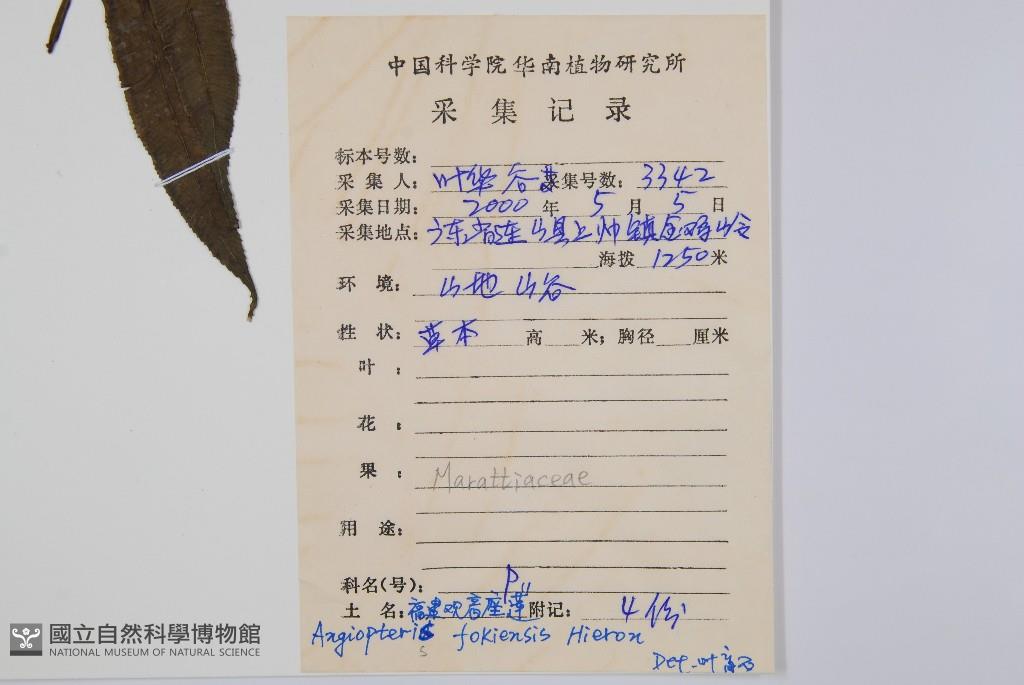 中国科学院华南植物研究所
采集记录
标本号数:
采集人: 叶华谷 采集号数: 3342
采集日期: 2000 年 5 月 5 日
采集地点: 广东省连山县上帅镇
海拨 1250 米
环境: 山地 山谷
性状: 草本 高 米; 胸径 厘米
叶:
花:
果: Marattiaceae
用途:
科名(号): P11
土名: 福建观音座莲 附记: 4份
Angiopteris fokiensis Hieron
s
Det. 叶
國立自然科學博物館
NATIONAL MUSEUM OF NATURAL SCIENCE